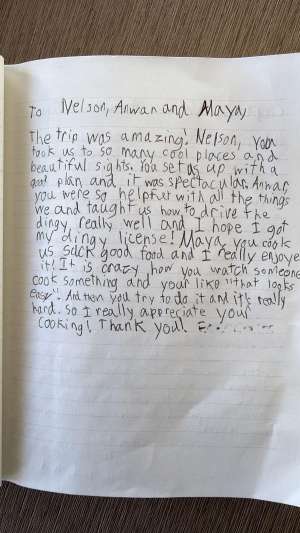 To Nelson, Anwar and Maya,
The trip was amazing! Nelson, you
took us to so many cool places and
beautiful sights. You set us up with a
good plan and it was spectacular. Anwar,
you were so helpful with all the things
we and taught us how to drive the
dingy really well and I hope I got
my dingy license! Maya you cook
us suck good food and I really enjoye
it! It is crazy how you watch someone
cook something and your like "that looks
easy". And then you try to do it and it's really
hard. So I really appreciate your
cooking! Thank you!